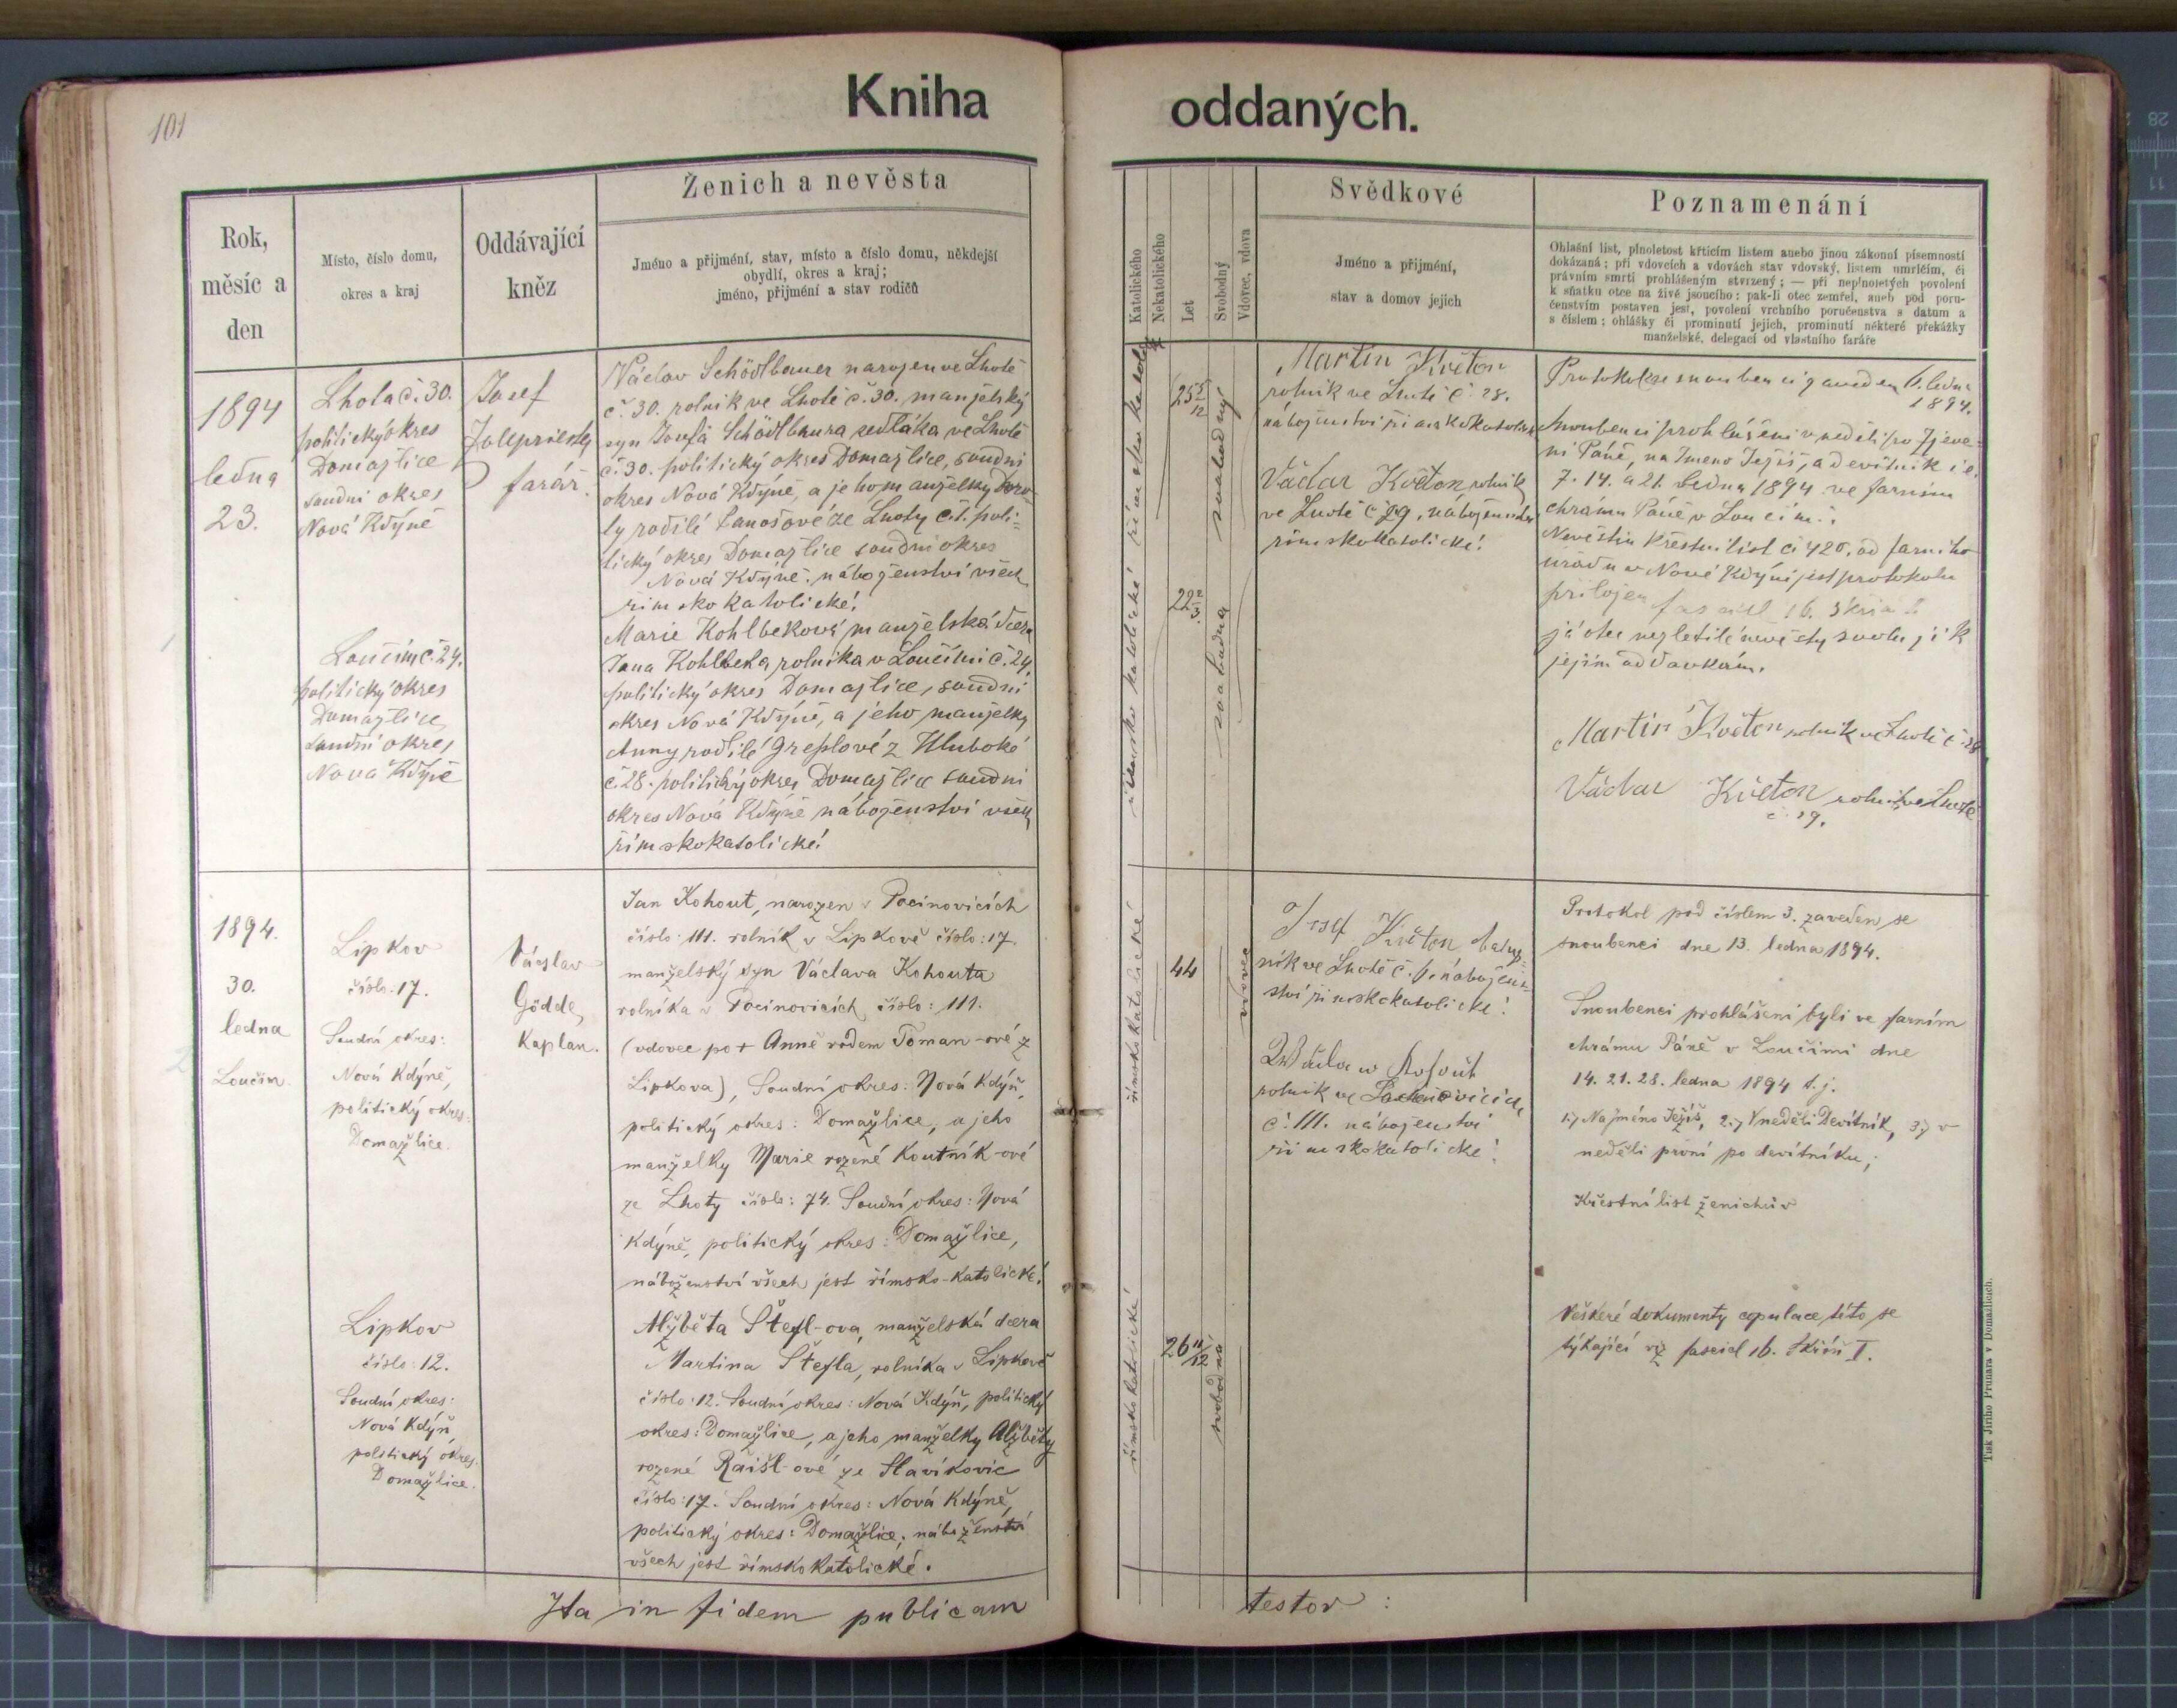 101
Kniha oddaných.
Rok,
měsíc a
den
Místo, číslo domu,
okres a kraj
Oddávající
kněz
Ženich a nevěsta
Jméno a přijmění, stav, místo a číslo domu, někdejší
obydlí, okres a kraj;
jméno, přijmění a stav rodičů
Katolického
Nekatolického
Let
Svobodný
Vdovec, vdova
Svědkové
Jméno a přijmění,
stav a domov jejich
Poznamenání
Ohlašní list, plnoletost křticím listem anebo jinou zákonní písemností
dokázaná; při vdovcích a vdovách stav vdovský, listem umrlčím, či
právním smrti prohlášeným stvrzený; — při neplnoletých povolení
k sňatku otce na živě jsoucího; pak-li otec zemřel, aneb pod poru-
čenstvím postaven jest, povolení vrchního poručenstva s datum a
s číslem; ohlášky či prominutí jejich, prominutí některé překážky
manželské, delegací od vlastního faráře
1894
ledna
23.
Lhota č. 30.
politický okres
Domažlice
soudní okres
Nová Kdýně
Josef
farář.
Václav Schödlbauer narozen ve Lhotě
č. 30. rolník ve Lhotě č. 30. manželský
syn Josefa Schödlbaura sedláka ve Lhotě
č. 30. politický okres Domažlice, soudní
okres Nová Kdýně, a jeho manželky Doro-
ty rodilé ze Lhoty č. 1. poli-
tický okres Domažlice soudní okres
Nová Kdýně. náboženství všech
římsko katolické!
1
Loučim č. 24.
politický okres
Domažlice
soudní okres
Nová Kdýně
Marie Kohlbeková manželská dcera
Jana Kohlbeka, rolníka v Loučimi č. 24,
politický okres Domažlice, soudní
okres Nová Kdýně, a jeho manželky
Anny rodilé Greslové z Hluboké
č. 28. politický okres Domažlice soudní
okres Nová Kdýně náboženství všech
římskokatolické!
25 5/12
svobodný
22 2/3
svobodná
Martin Květon
rolník ve Lhotě č. 28.
náboženství římskokatolické
Václav Květon rolník
ve Lhotě č 29, náboženství
římskokatolické!
Protokol se snoubenci zaveden 6. ledna
1894.
Snoubenci prohlášeni v neděli po Zjeve-
ní Páně, na Jmeno Ježíš, a devítník i.e.
7. 14. a 21. ledna 1894 ve farním
chrámu Páně v Loučimi.
Nevěstin křestní list č 420, od farního
úřadu v Nové Kdýni jest protokolu
přiložen fascikl 16. skříň I.
já otec nezletilé nevěsty svoluji k
jejím oddavkám.
Martin Květon rolník ve Lhotě č. 28
Václav Květon rolník ve Lhotě
č. 29.
2
1894.
30.
ledna
Loučim.
Lipkov
číslo: 17.
Soudní okres:
Nová Kdýně,
politický okres:
Domažlice.
Vácslav
Gödde,
Kaplan.
Jan Kohout, narozen v Pocinovicích
číslo: 111. rolník v Lipkově číslo: 17.
manželský syn Václava Kohouta
rolníka v Pocinovicích číslo: 111.
(vdovec po + Anně rodem Toman-ové z
Lipkova), Soudní okres: Nová Kdýň,
politický okres: Domažlice, a jeho
manželky Marie rozené Koutník-ové
ze Lhoty číslo: 74. Soudní okres: Nová
Kdýně, politický okres: Domažlice,
náboženství všech jest římsko-katolické!
Lipkov
číslo: 12.
Soudní okres:
Nová Kdýň
politický okres
Domažlice.
Alžběta Štefl-ova, manželská dcera
Martina Štefla, rolníka v Lipkově
číslo: 12. Soudní okres: Nová Kdýň, politický
okres: Domažlice, a jeho manželky Alžběty
rozené Raišl-ové ze Slavíkovic
číslo: 17. Soudní okres: Nová Kdýně,
politický okres: Domažlice; náboženství
všech jest římskokatolické.
římskokatolické
44
vdovec
římskokatolické
26 11/12
svobodná
Josef Květon
ník ve Lhotě č. 6. nábožen-
ství římskokatolické!
Kohout
rolník ve Pocinovicích
č. 111. náboženství
římskokatolické!
Protokol pod číslem 3. zaveden se
snoubenci dne 13. ledna 1894.
Snoubenci prohlášeni byli ve farním
chrámu Páně v Loučimi dne
14. 21. 28. ledna 1894 t. j.
1.) Na jméno Ježíš, 2.) V neděli Devítník, 3.) v
neděli první po devítníku;
Křestní list ženichův
Veškeré dokumenty copulace této se
týkající viz fascicl 16. Skříň I.
Ita in fidem publicam testor:
Tisk Jiřího Prunara v Domažlicích.